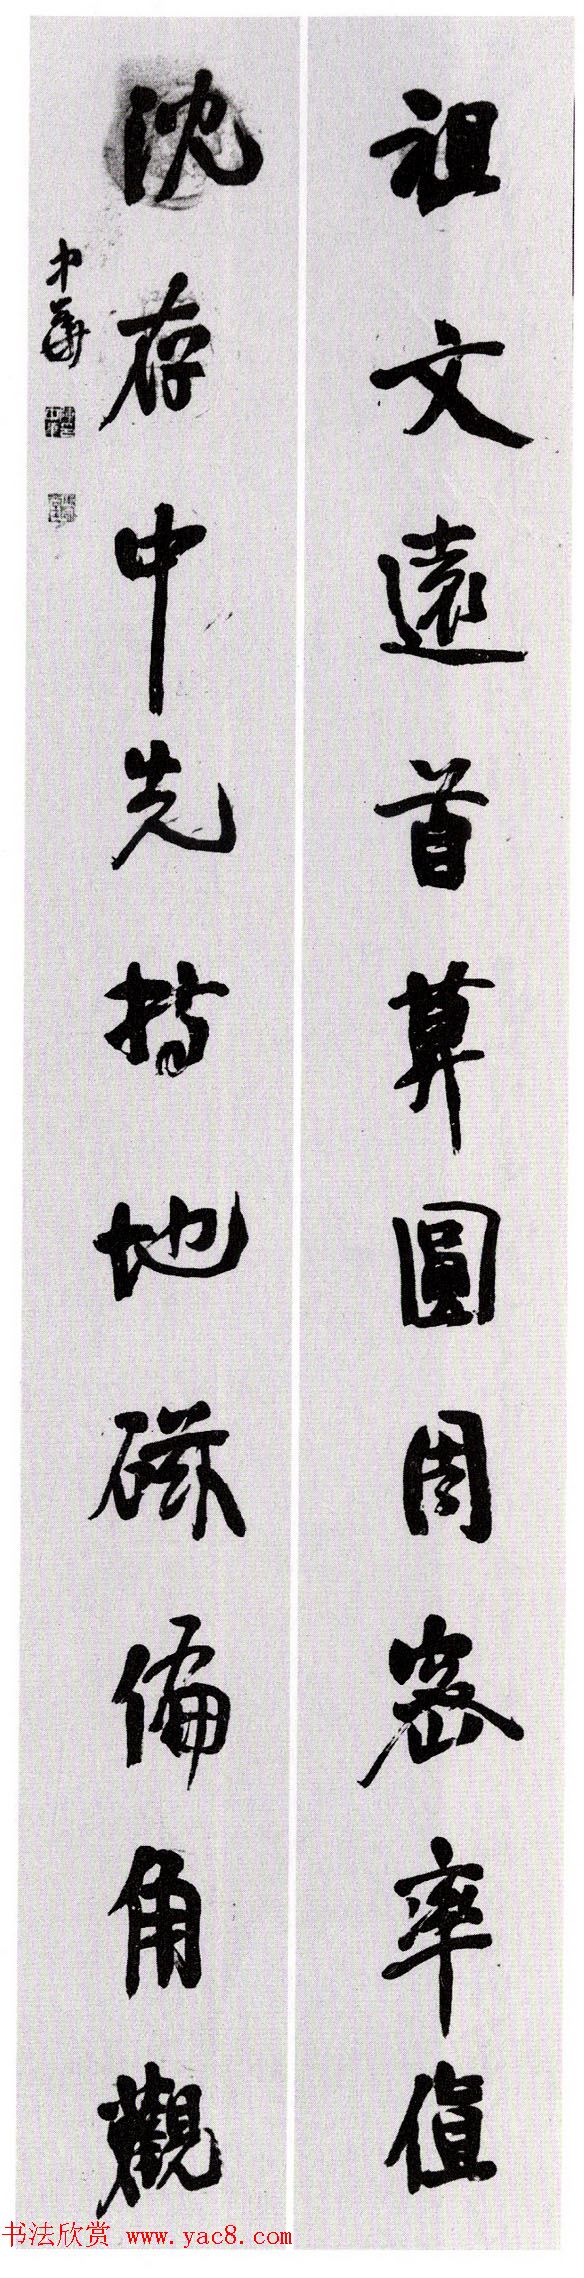 祖文遠首算圓周密率值
沈存中先持地磁偏角觀
中華
书法欣赏 www.yac8.com